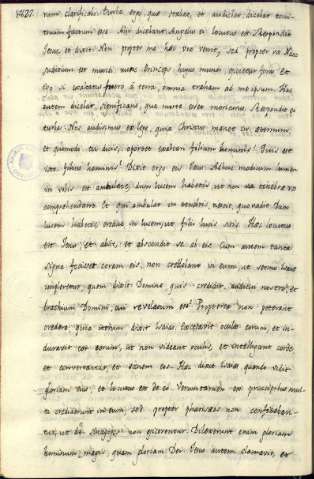 rum clarificabo. turba ergo, que stabat, et audiebat dicebat toni-
truum factum esse. Alij dicebant Angelus ei locutus est. Respondit
Jesus, et dixit. Non propter me haec vox venit, sed propter vos. Nunc
Judicium est mundi: nunc princeps hujus mundi ejicietur foras. et
Ego si exaltatus fuero à terra, omnia traham ad me ipsum. Hoc
autem dicebat, significans, qua morte esset moriturus. Respondit ei
turba. Nos audivimus ex lege, quia Christus manet in aeternum,
et quomodo tu dicis, oportet exaltari filium hominis? Quis est
iste filius hominis? Dixit ergo eis Jesus. Adhuc modicum lumen
in vobis est ambulate, dum lucem habetis ut non vos tenebrae
comprehendant. Et qui ambulat in tenebris nescit, quo vadat. Dum
lucem habetis, credite in lucem, ut filii lucis sitis. Haec locutus
est Jesus, et abiit, et abscondit se ab eis. Cum autem tanta
signa fecisset coram eis, non credebant in eum, ut sermo Isaiae
impleretur, quem dixit. Domine quis credidit, auditui nostro, et
brachium Domini, cui revelatum est? Propterea non poterant
credere quia iterum dixit Isaias. Excaecavit oculos eorum, et in-
duravit cor eorum, ut non videant oculis, et intelligant corde
et convertantur, et sanem eos. Haec dixit Isaias quando vidit
gloriam ejus, et locutus est de eo. Verumtamen ex principibus mul-
ti crediderunt in eum, sed propter pharisaeos non confitebantur
ut de Sinagoga non ejicerentur. Dilexerunt enim gloriam
hominum, magis quam gloriam Dei. Jesus autem clamavit, et